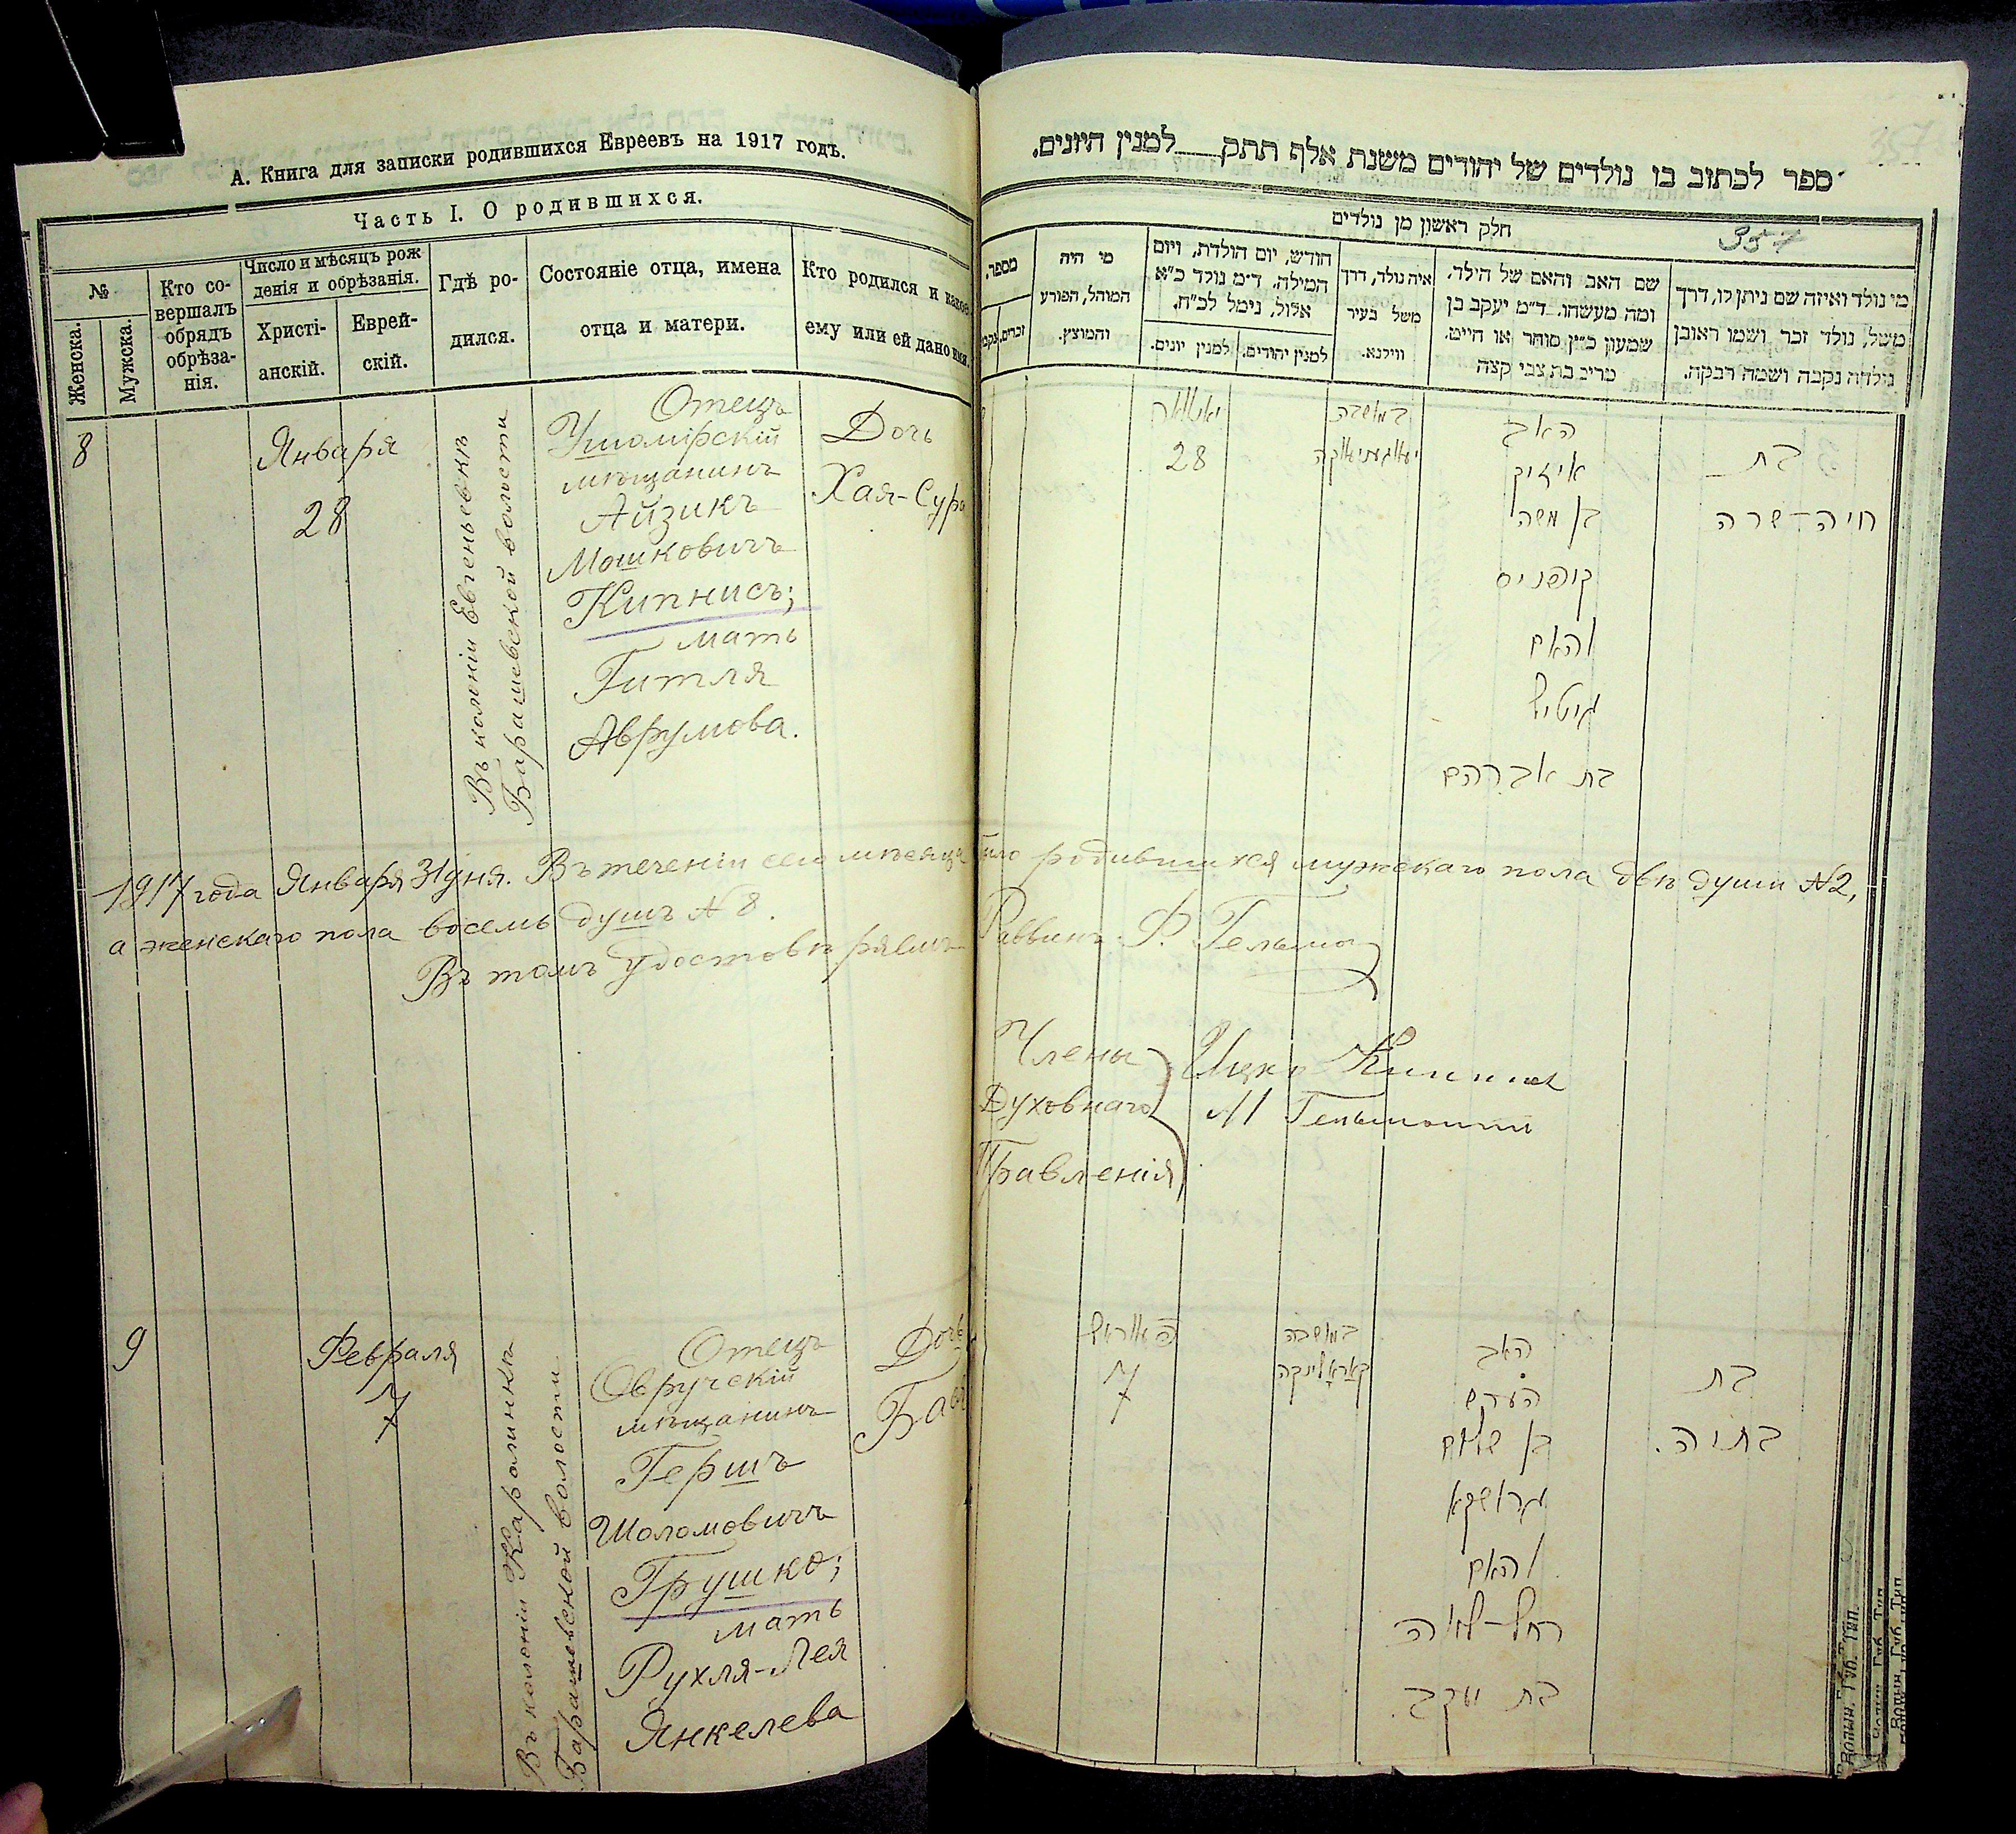 А. Книга для записки родившихся Евреевъ на 1917 годъ.
Часть I. О родившихся.
№
Женска.
Мужска.
Кто со-
вершалъ
обрядъ
обрѣза-
нія.
Число и мѣсяцъ рож
денія и обрѣзанія.
Христі-
анскій.
Еврей-
скій.
Гдѣ ро-
дился.
Состояніе отца, имена
отца и матери.
Кто родился и какое
ему или ей дано имя.
8
Января
28
Въ колоніи Евгеньевкѣ
Барашевской волости
Отецъ
Ушомірскій
мѣщанинъ
Айзикъ
Мошковичъ
Кипнисъ;
мать
Гитля
Аврумова.
Дочь
Хая-Сура
1917 года Января 31 дня. Въ теченіи сего мѣсяца было родившихся мужскаго пола двѣ души №2,
а женскаго пола восемь душъ №8.
Въ томъ удостовѣряемъ
Раввинъ Ф.
Члены
Духовнаго
Правленія
Ицко Кипнис
9
Февраля
7
Въ колоніи Каролинкѣ
Барашевской волости
Отецъ
Овручскій
мѣщанинъ
Гершъ
Шоломовичъ
Грушко;
мать
Рухля-Лея
Янкелева
Дочь
ספר לכתוב בו נולדים של יהודים משנת אלף תתק למנין היונים.
חלק ראשון מן נולדים
357
מספר.
זכרים.
מי היה
המוהל, הפורע
והמוצץ.
חודש, יום הולדת, ויום
המילה. ד״מ נולד כ״א
אלול, נימל לכ״ח.
למנין יונים.
למנין יהודים.
איה נולד, דרך
משל בעיר
ווילנא.
שם האב והאם של הילד.
ומה מעשהו. ד״מ יעקב בן
שמעון כ״ץ סוחר או חייט.
מרים בת צבי קצה
מי נולד ואיזה שם ניתן לו, דרך
משל, נולד זכר ושמו ראובן
נולדה נקבה ושמה רבקה.
יאנואר
28
במושבה
האב
אייזיק
בן משה
קיפניס
והאם
גיטיל
בת אברהם
בת
חיה-שרה
7
במושבה
קאראלינקה
האב
הערש
בן שלום
גרושקא
והאם
רחל-לאה
בת יעקב.
בת
בתיה.
Волын. Губ. Тип.